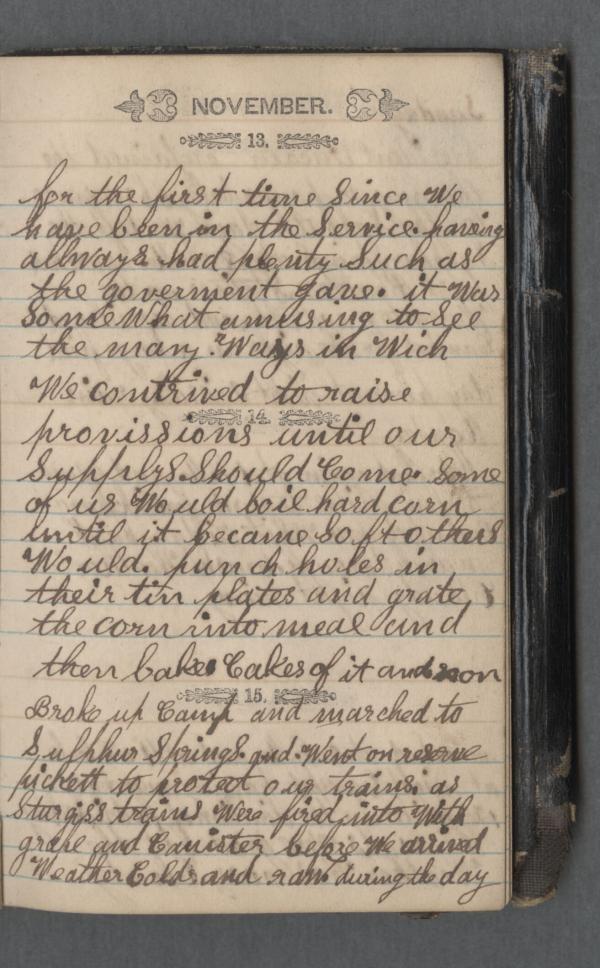 NOVEMBER.
13.
for the first time Since We
have been in the Service. having
allways had plenty Such as
the goverment gave. it Was
SomeWhat amusing to See
the many Ways in Wich
We contrived to raise
14.
provissions until our
Supplys. Should Come. Some
of us Would boil hard corn
until it became Soft others
Would. punch holes in
their tin plates and grate
the corn into meal and
then bake Cakes of it and soon
15.
Broke up Camp and marched to
Sulphur Springs. and. Went on reserve
pickett to protect our trains. as
Sturgiss trains Were fired into With
grape and Canister before We arrived
Weather Cold. and rain during the day